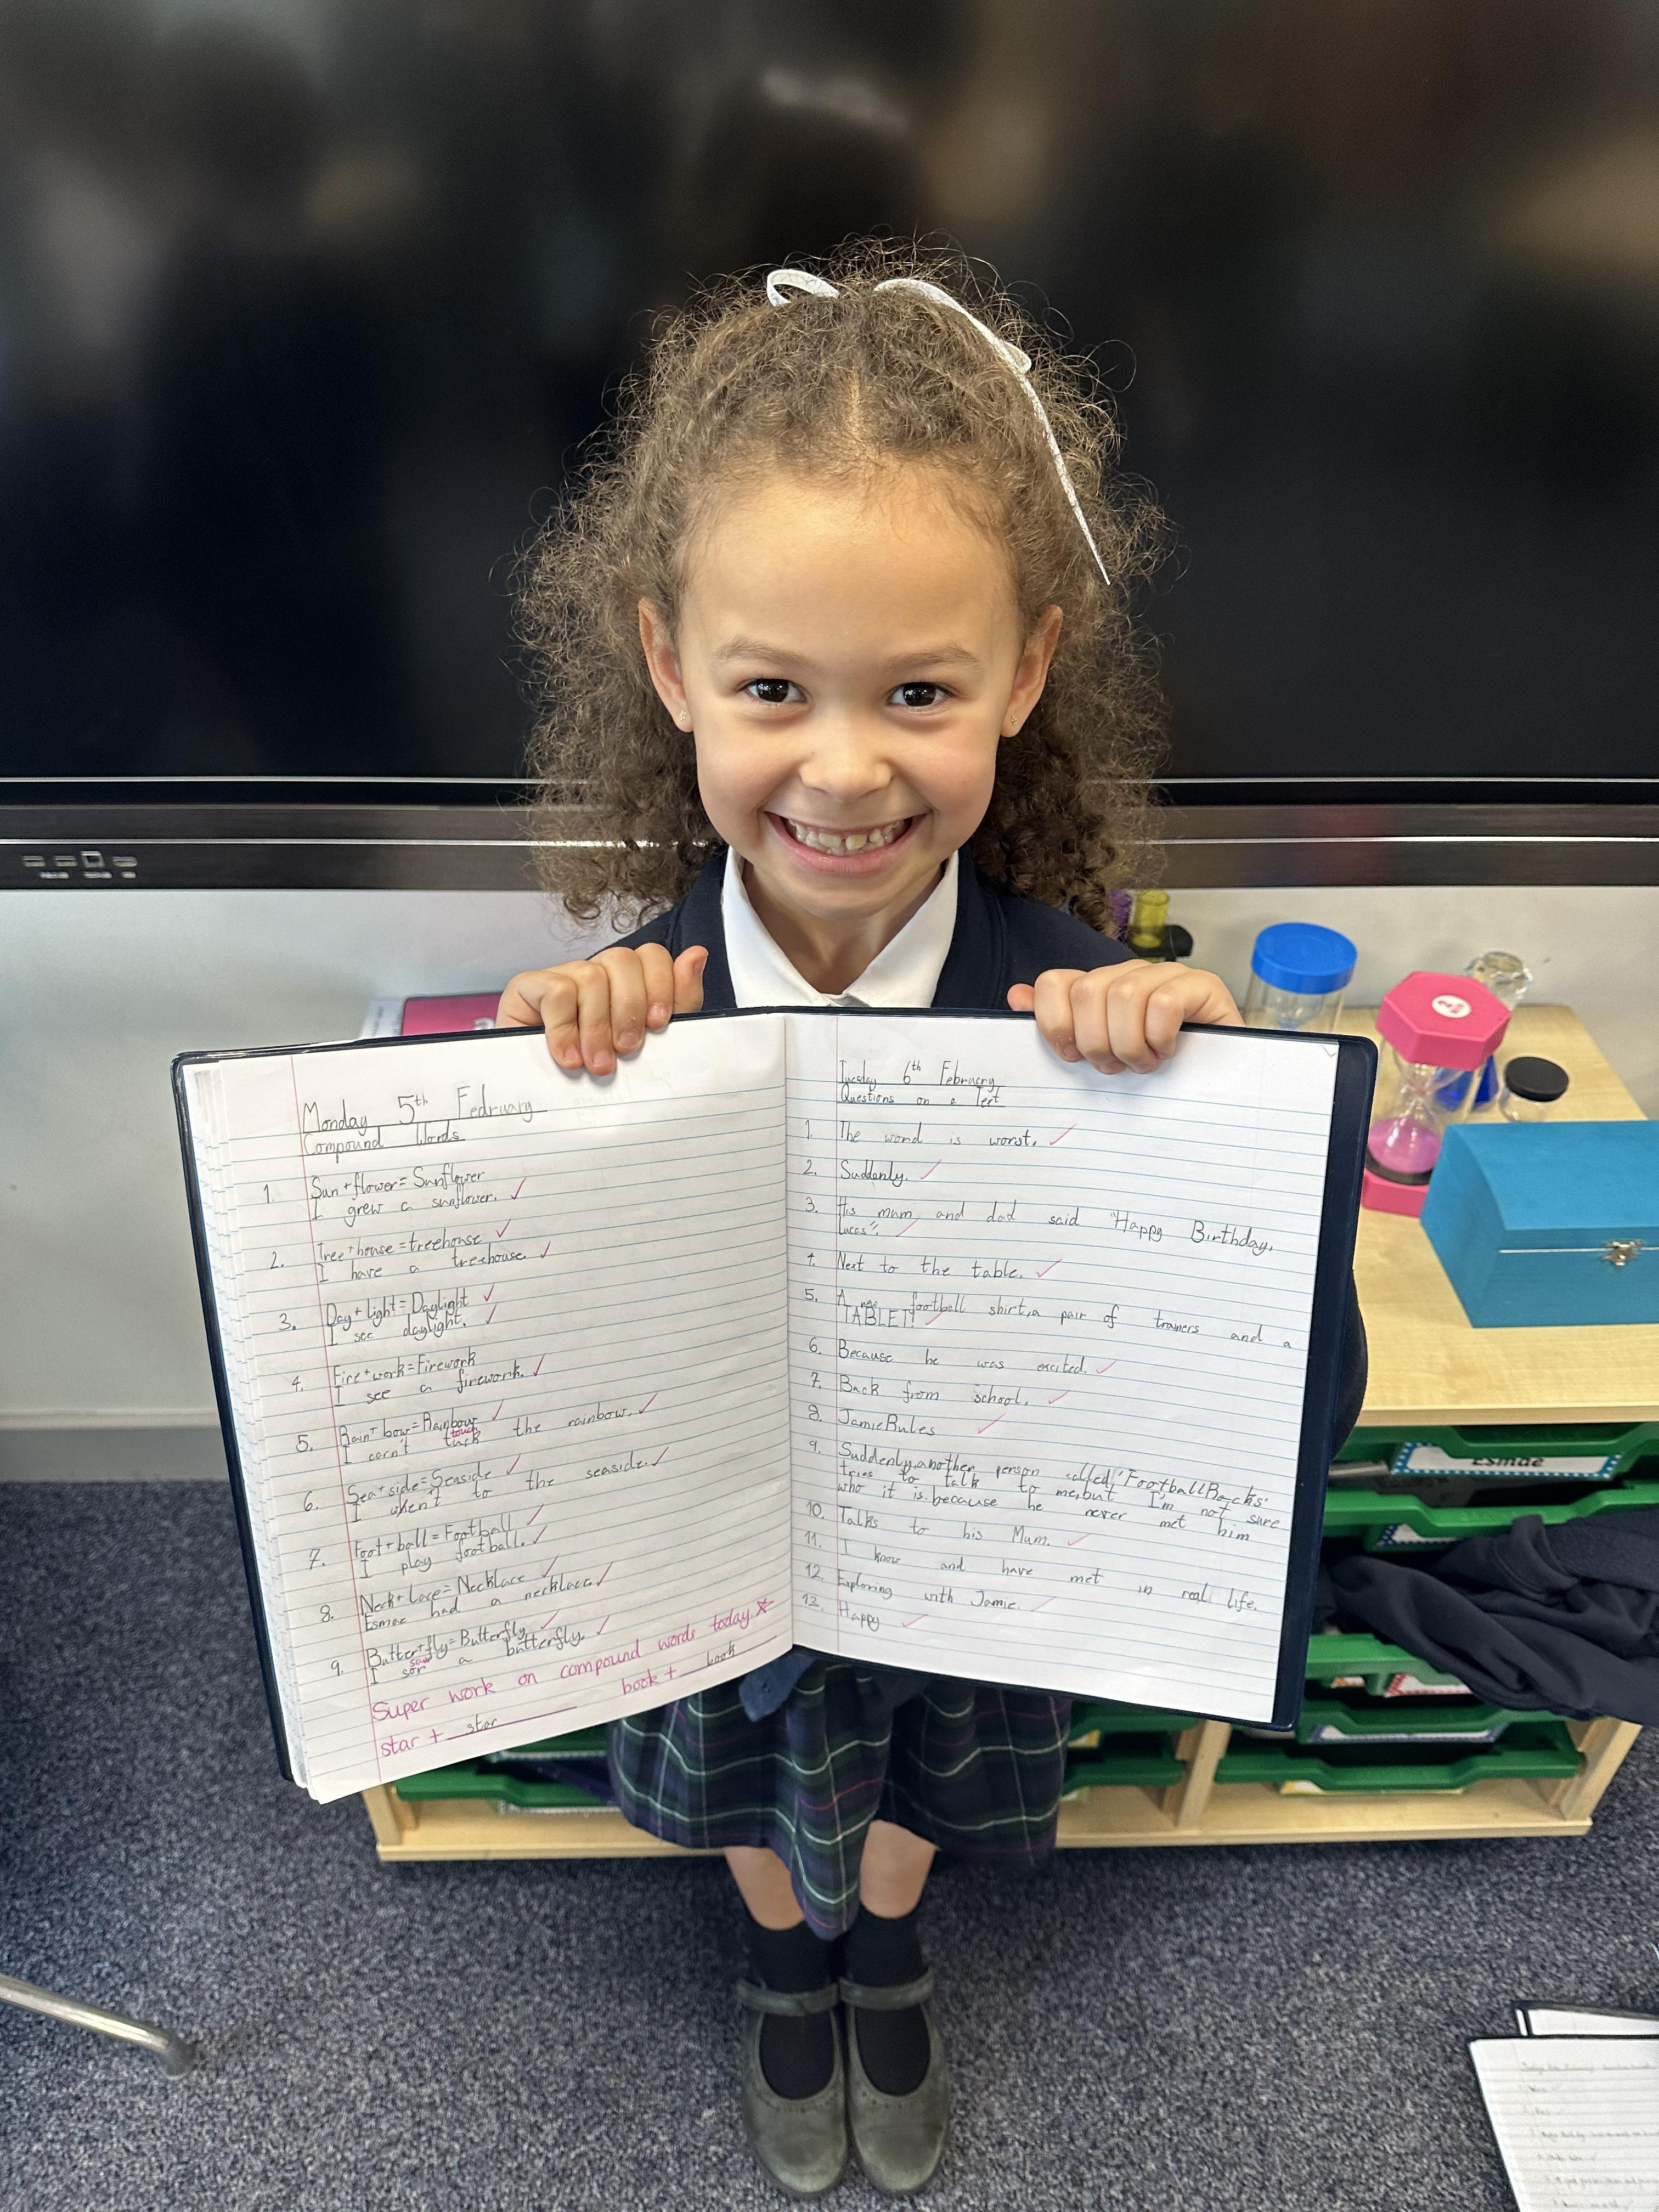 Monday 5th Fedruary
Compound Words
1. Sun+flower=Sunflower
I grew a sunflower.
2. Tree+house=treehouse
I have a treehouse.
3. Day+light=Daylight
I see daylight.
4. Fire+work=Firework
I see a firework.
5. Rain+bow=Rainbow
touch
I carn't the rainbow.
6. Sea+side=Seaside
I when't to the seaside.
7. Foot+ball=Football
I play football.
8. Neck+Lace=Necklace
Esmae had a necklace.
9. Butter+fly=Butterfly
saw
I sor a butterfly.
Super work on compound words today.
star + star book + book
Tuesday 6th February
Questions on a Text
1. The word is worst.
2. Suddenly.
3. His mum and dad said "Happy Birthday,
Lucas".
4. Next to the table.
5. A new football shirt,a pair of trainers and a
TABLET!
6. Because he was excited.
7. Back from school.
8. JamieRules
9. Suddenly,another person called'FootballRocks'
tries to talk to me,but I'm not sure
who it is.because he never met him
10. Talks to his Mum.
11. I know and have met in real life.
12. Exploring with Jamie.
13. Happy
Esmae